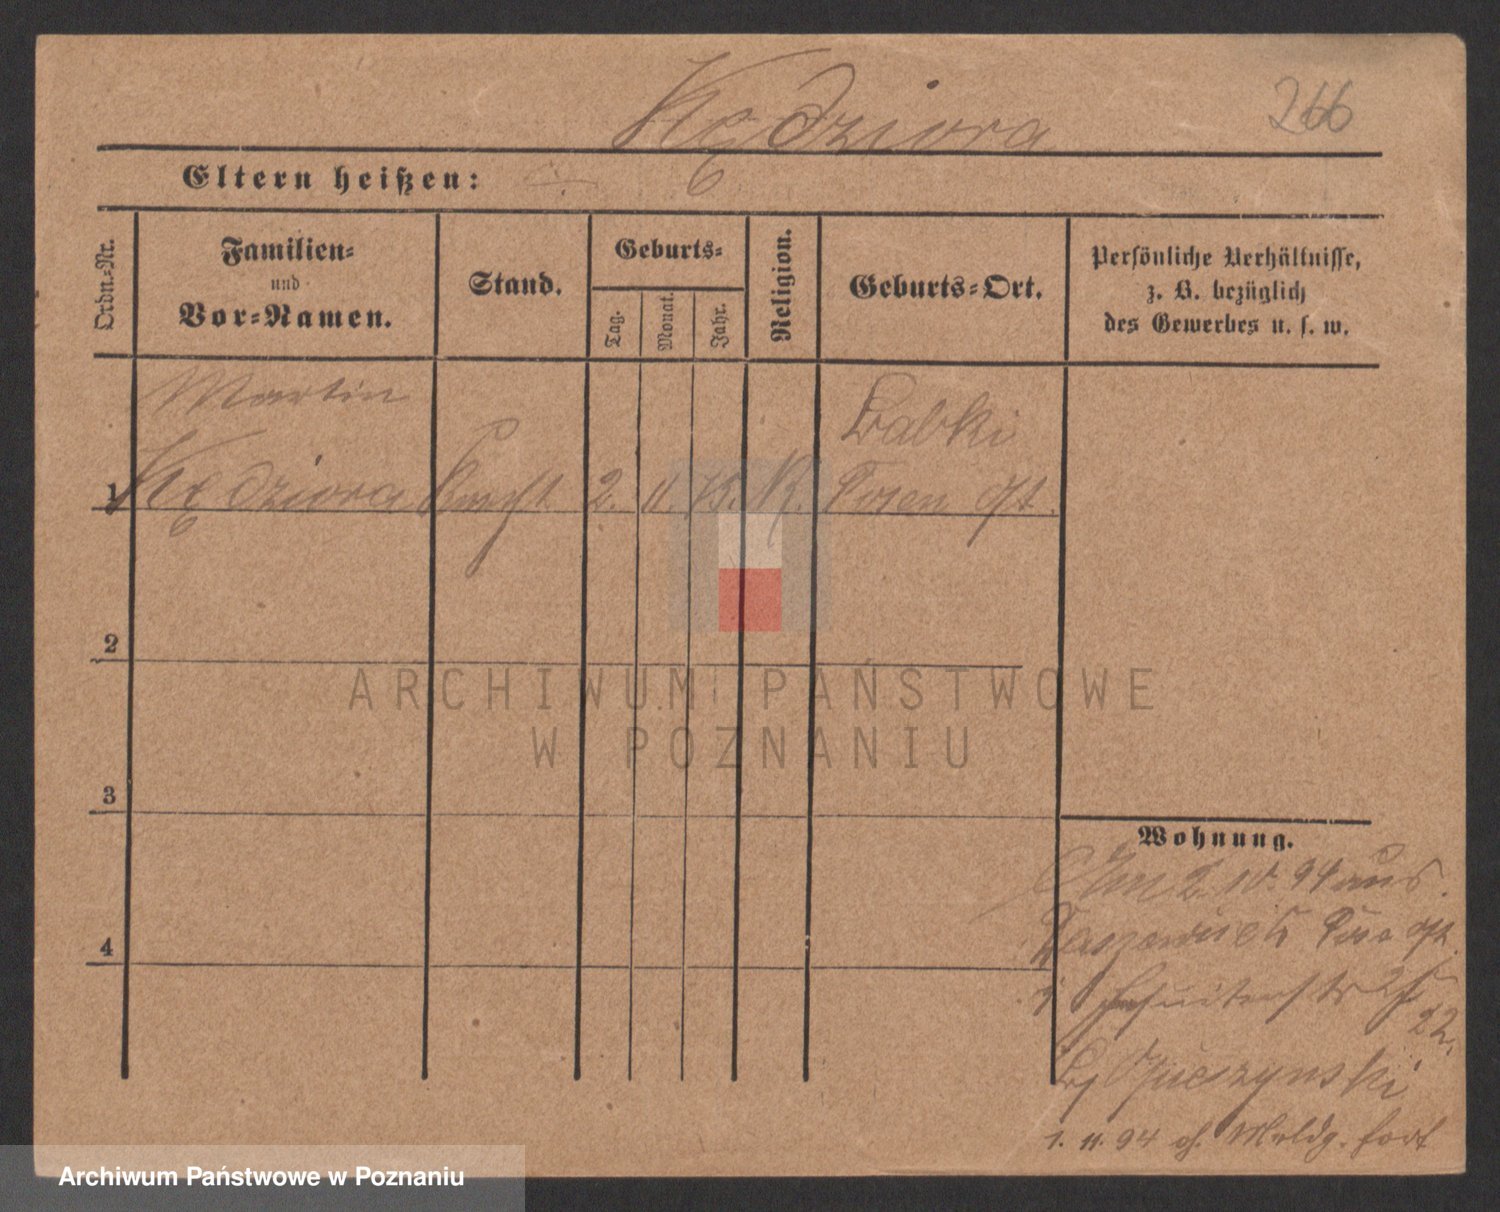 Kędziora
266
Eltern heißen:
Ordn.-Nr.
Familien-
und
Vor-Namen.
Stand.
Geburts-
Tag.
Monat.
Jahr.
Religion.
Geburts-Ort.
Persönliche Verhältnisse,
z. B. bezüglich
des Gewerbes u. s. w.
Martin
Kędziora
Knecht
2. 11. 75. K.
Babki
Posen Ost.
1
2
3
4
Wohnung.
2. IV. 94 aus
Posen Ost.
Jesuitenstr
22.
1. 11. 94 oh. Meldg. fort
ARCHIWUM PAŃSTWOWE
W POZNANIU
Archiwum Państwowe w Poznaniu